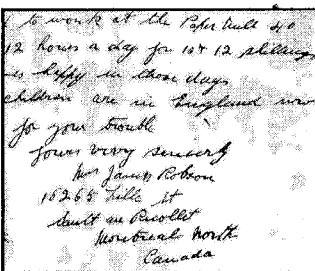 to work at the Paper Mill 40
12 hours a day for 10 or 12 shillings
as happy in those days
children are in England now
for your trouble
yours very sincerely
Mrs James Robson
16265 St
Sault au Recollet
Montreal North
Canada